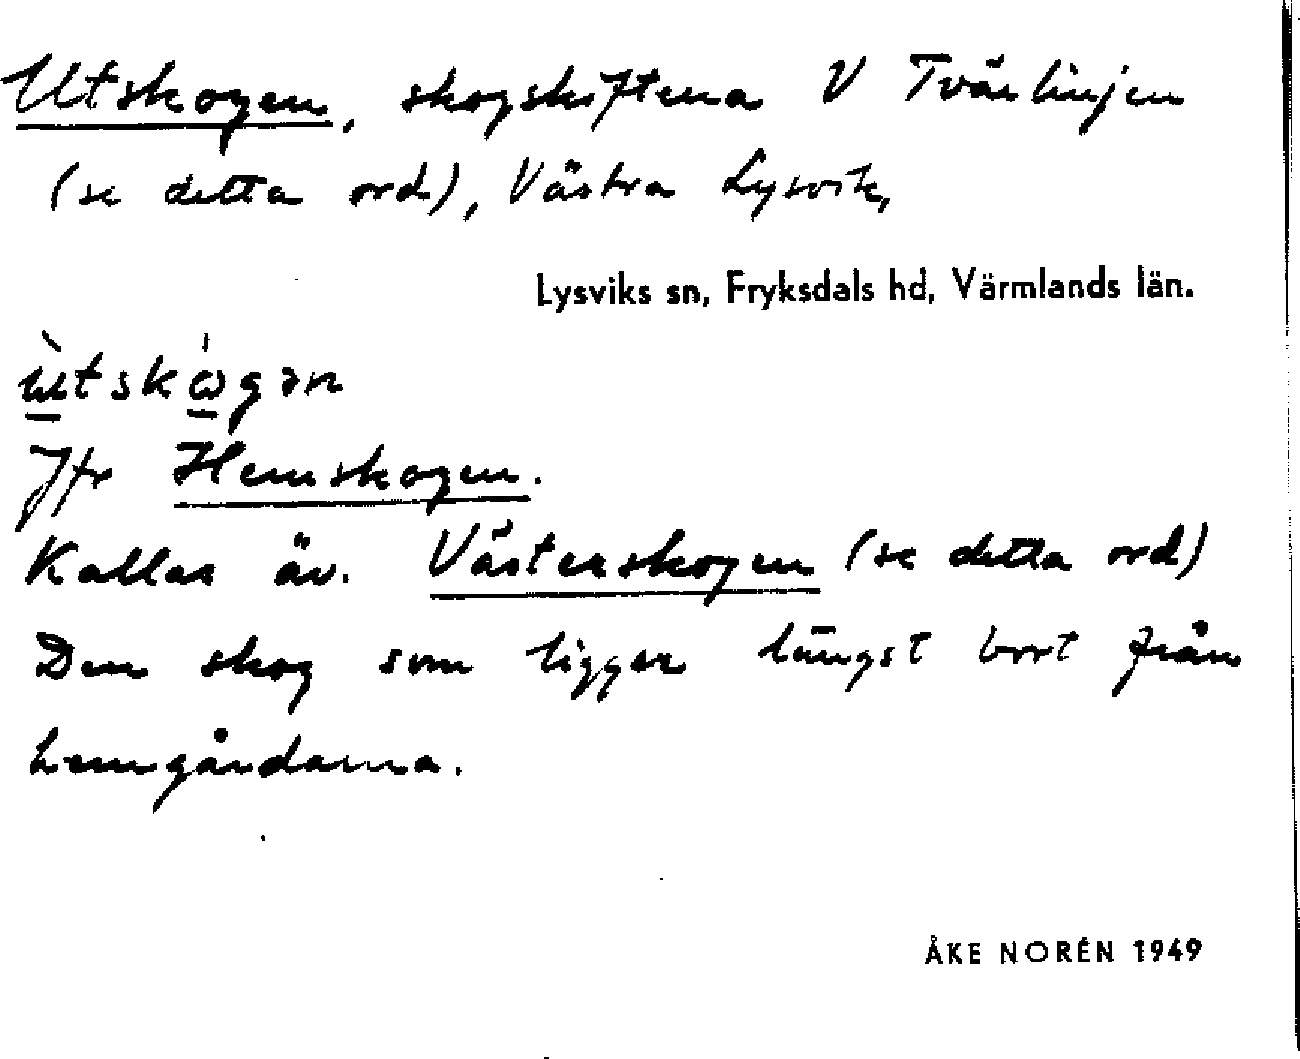 Utskogen, skogskiftena V Tvärlinjen
(se detta ord), Västra Lysvik,
Lysviks sn, Fryksdals hd, Värmlands län.
ùtskɷ́gən
Jfr Hemskogen.
Kallas äv. Västerskogen (se detta ord)
Den skog som ligger längst bort från
hemgårdarna.
ÅKE NORÉN 1949